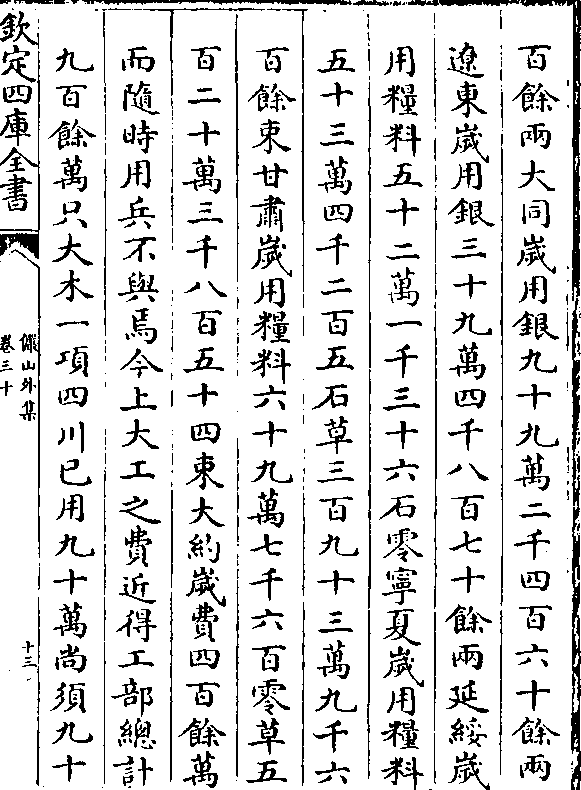 百餘兩大同歲用銀九十九萬二千四百六十餘兩
遼東歲用銀三十九萬四千八百七十餘兩延綏歲
用糧料五十二萬一千三十六石零寧夏歲用糧料
五十三萬四千二百五石草三百九十三萬九千六
百餘束甘肅歲用糧料六十九萬七千六百零草五
百二十萬三千八百五十四束大約歲費四百餘萬
而隨時用兵不與焉今上大工之費近得工部總計
九百餘萬只大木一項四川已用九十萬尚須九十
欽定四庫全書
儼山外集
卷三十
十三